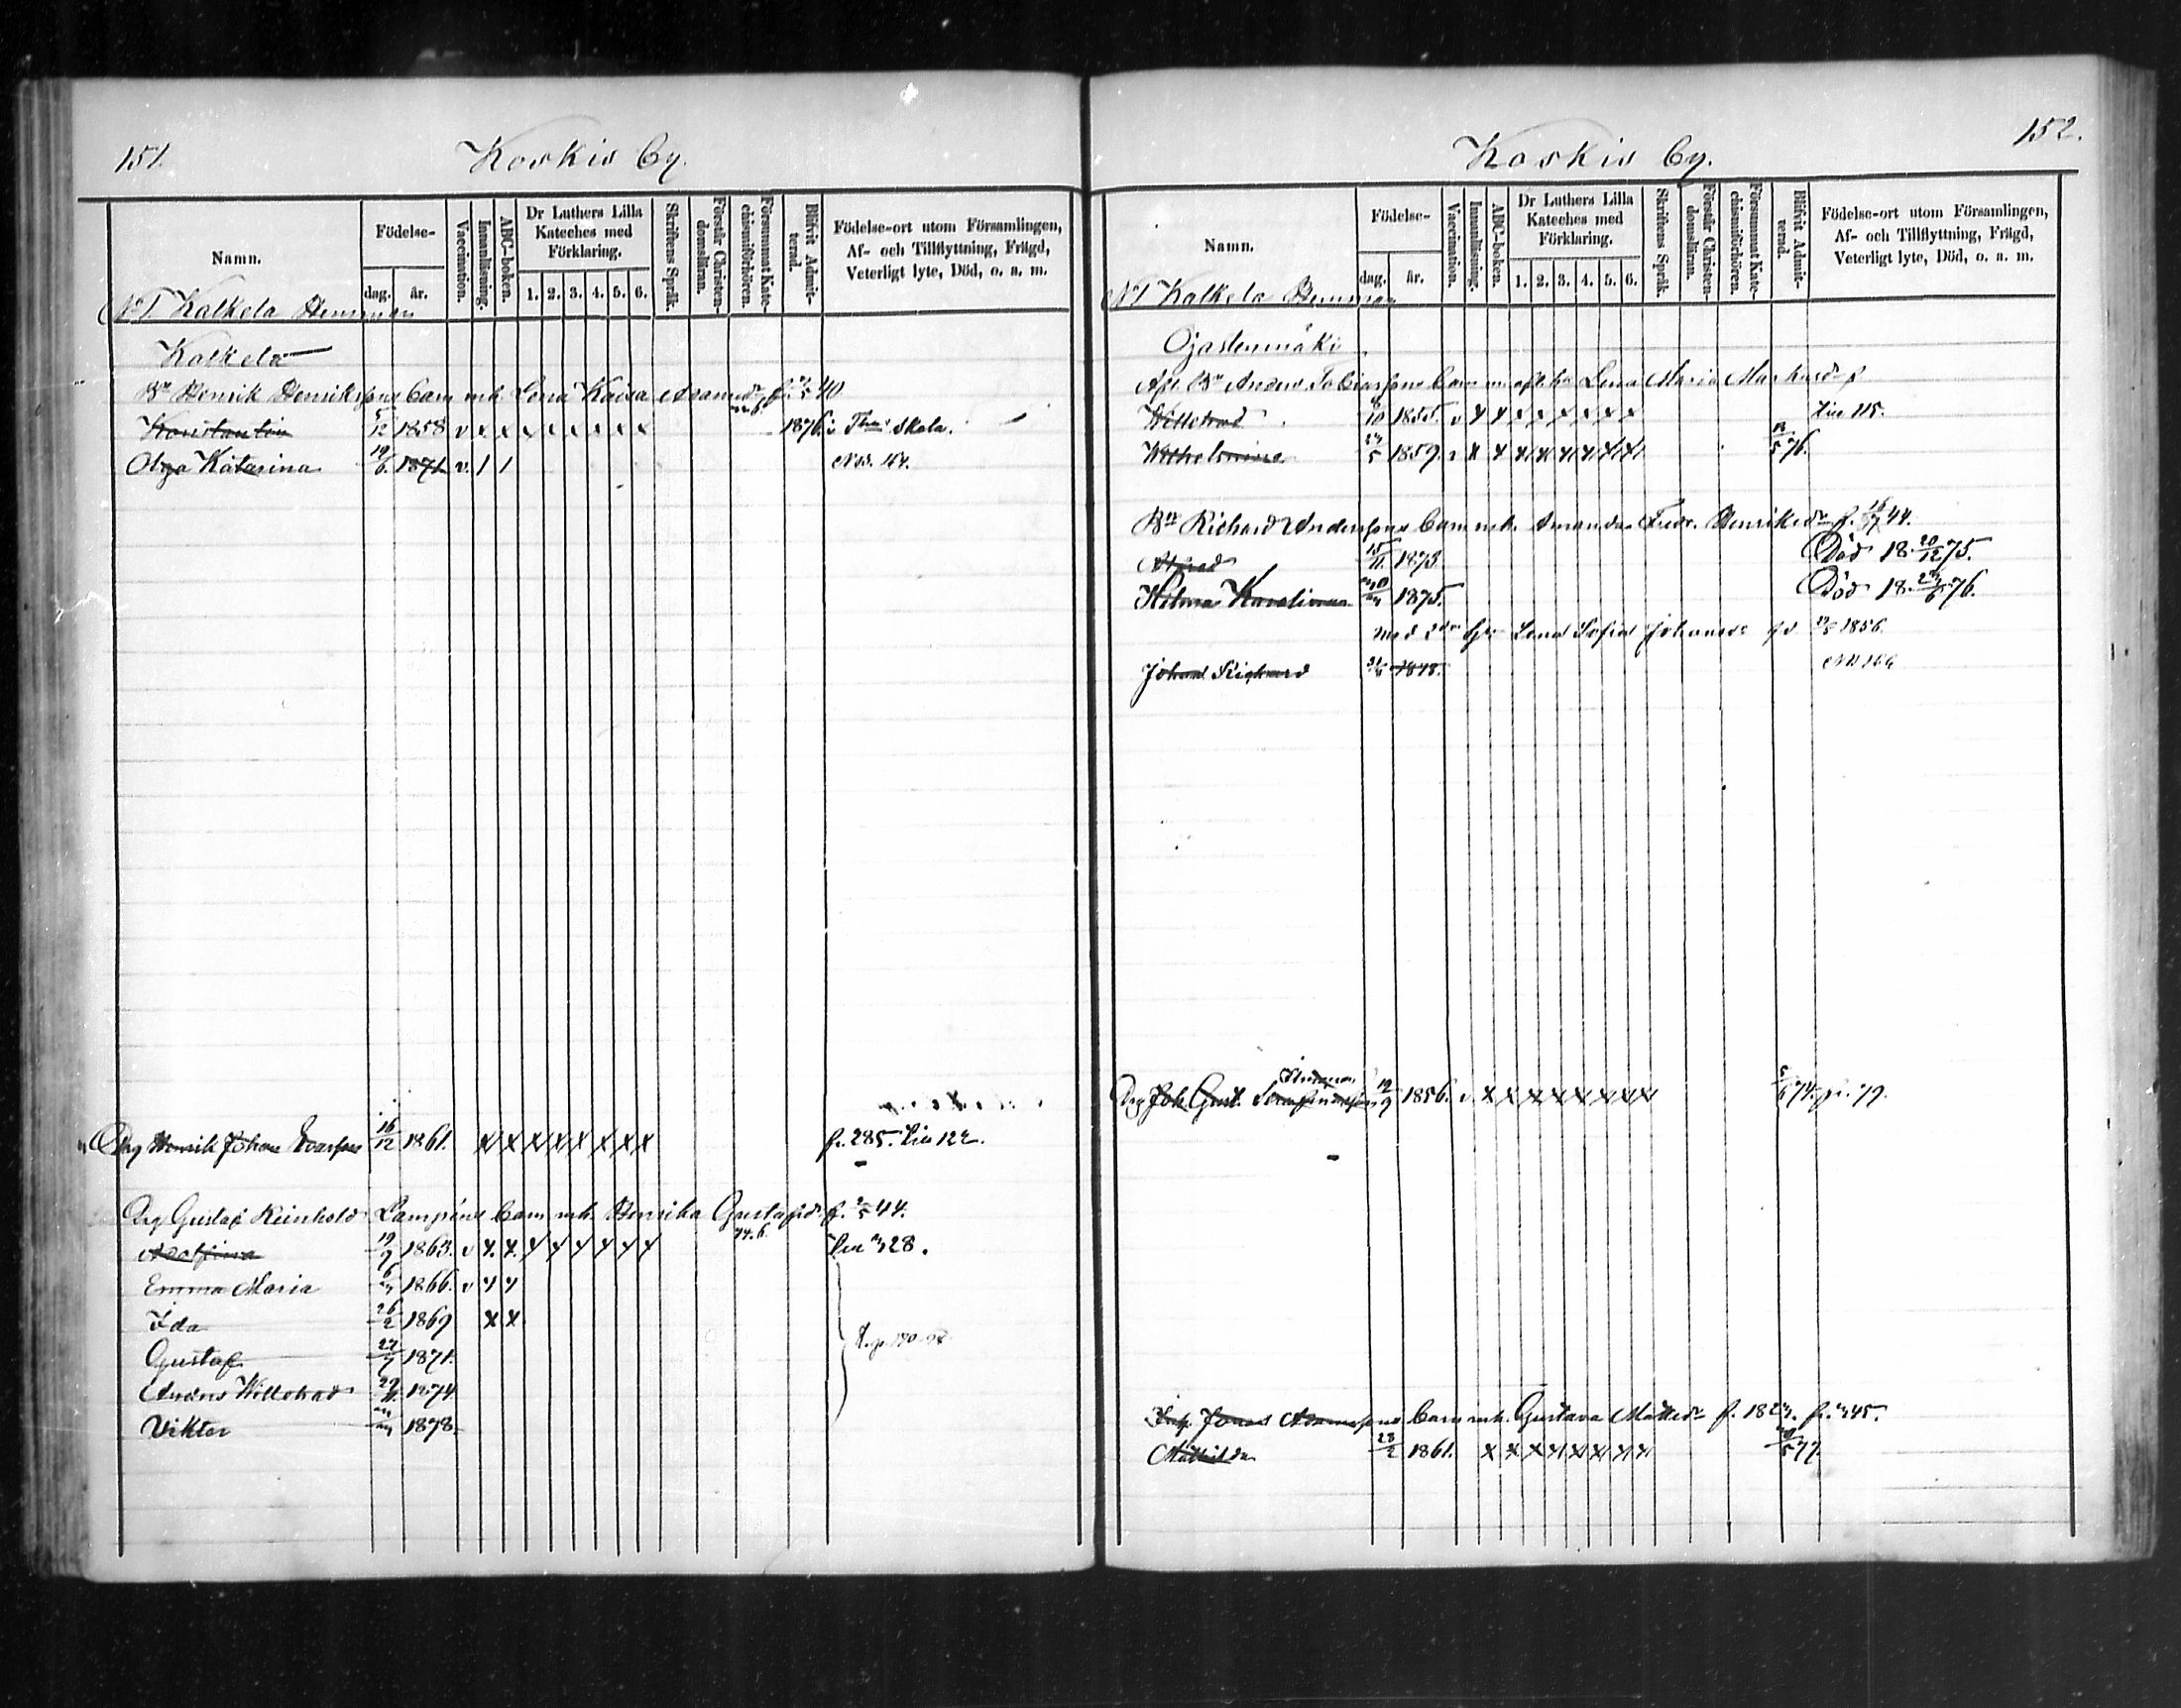 151.
Koskis by.
Namn.
Födelse-
dag.
år.
Vaccination.
Innanläsning.
ABC-boken.
Dr Luthers Lilla
Kateches med
Förklaring.
1. 2. 3. 4. 5. 6.
Skriftens Språk.
Förstår Christen-
domsläran.
Försummat Kate-
chismiförhören.
Blifvit Admit-
terad.
Födelse-ort utom Församlingen,
Af- och Tillflyttning, Frägd,
Veterligt lyte, Död, o. a. m.
No 1 Kalkela Hemman
Kalkela
Bn Henrik Henrikssons barn mh. Lena Kaisa Adamsdr f. 40.
Konstantin 5/12 1858 v x x x x x x x x 1876. i skola.
Olga Katarina 19/6 1871 v. / / N.B. 164.
Drg Henrik Johan 16/12 1861. x x x x x x x x fr. 285. Liu 122.
Drg Gustaf Reinhold barn mh. Henrika Gustafsdr f. 2/5 44.
Adolfina 19/9 1863. v x x x x x x x x 28.
Emma Maria 1866. v x x
Ida 26/2 1869 x x
Gustaf 27/7 1871.
Anders Willehad 29/11 1874.
Viktor 1878.
152.
Koskis by.
Namn.
Födelse-
dag.
år.
Vaccination.
Innanläsning.
ABC-boken.
Dr Luthers Lilla
Kateches med
Förklaring.
1. 2. 3. 4. 5. 6.
Skriftens Språk.
Förstår Christen-
domsläran.
Försummat Kate-
chismiförhören.
Blifvit Admit-
terad.
Födelse-ort utom Församlingen,
Af- och Tillflyttning, Frägd,
Veterligt lyte, Död, o. a. m.
No 1 Kalkela Hemman
Ojastenmäki
Afl. Bn Anders Tobiassons barn m Lena Maria Markusdr
Willehad 10 1855. v x x x x x x x x Liu 115.
Wilhelmina 27/5 1859. v x x x x x x x x 76.
Bn Richard Anderssons barn mh. Amanda Fredr. Henriksdr f. 44.
Alfred 15/11 1873. Död 18 20/12 75.
Hilma Karolina 1875. Död 18 76.
med 2dra h. Lena Sofia Johansdr 1856.
Johan Rickard 1878.
Drg Joh. Gust. 19/9 1856. v x x x x x x x x 74. fr. 79.
Jonas Adamssons barn mh. Gustava Mattsdr f. 182 fr. 45.
Mathilda 28/2 1861. x x x x x x x x 77.